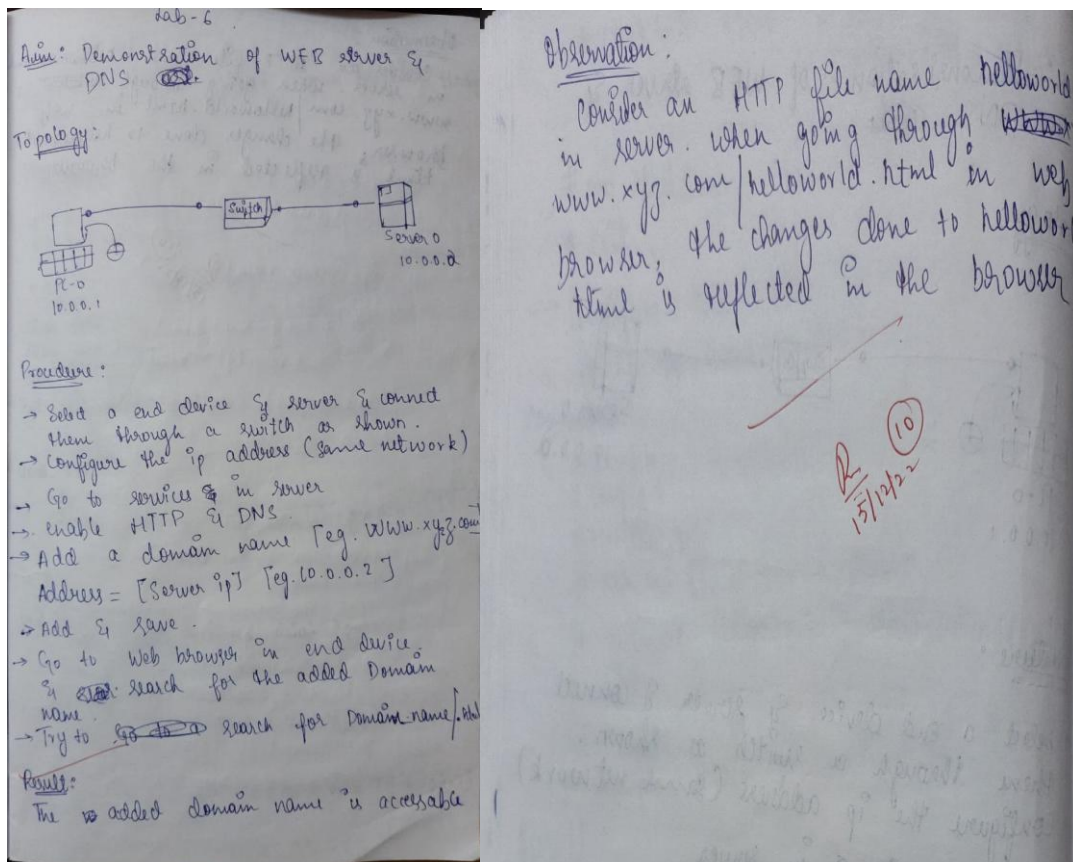 Lab-6
Aim: Demonstration of WEB server &
DNS
Topology:
Switch
Server 0
10.0.0.2
PC-0
10.0.0.1
Procedure:
→ Select a end device & server & connect
them through a switch as shown.
→ configure the ip address (same network)
→ Go to services in server
→ enable HTTP & DNS.
→ Add a domain name [eg. www.xyz.com
Address = [Server ip] [eg. 10.0.0.2]
→ Add & save.
→ Go to Web browser in end device
& search for the added Domain
name.
→ Try to search for Domain name/
Result:
The added domain name is accessable
Observation:
Consider an HTTP file name helloworld
in server. when going through
www.xyz.com/helloworld.html in web
browser, the changes done to hellowor
html is reflected in the browser
10
15/12/22